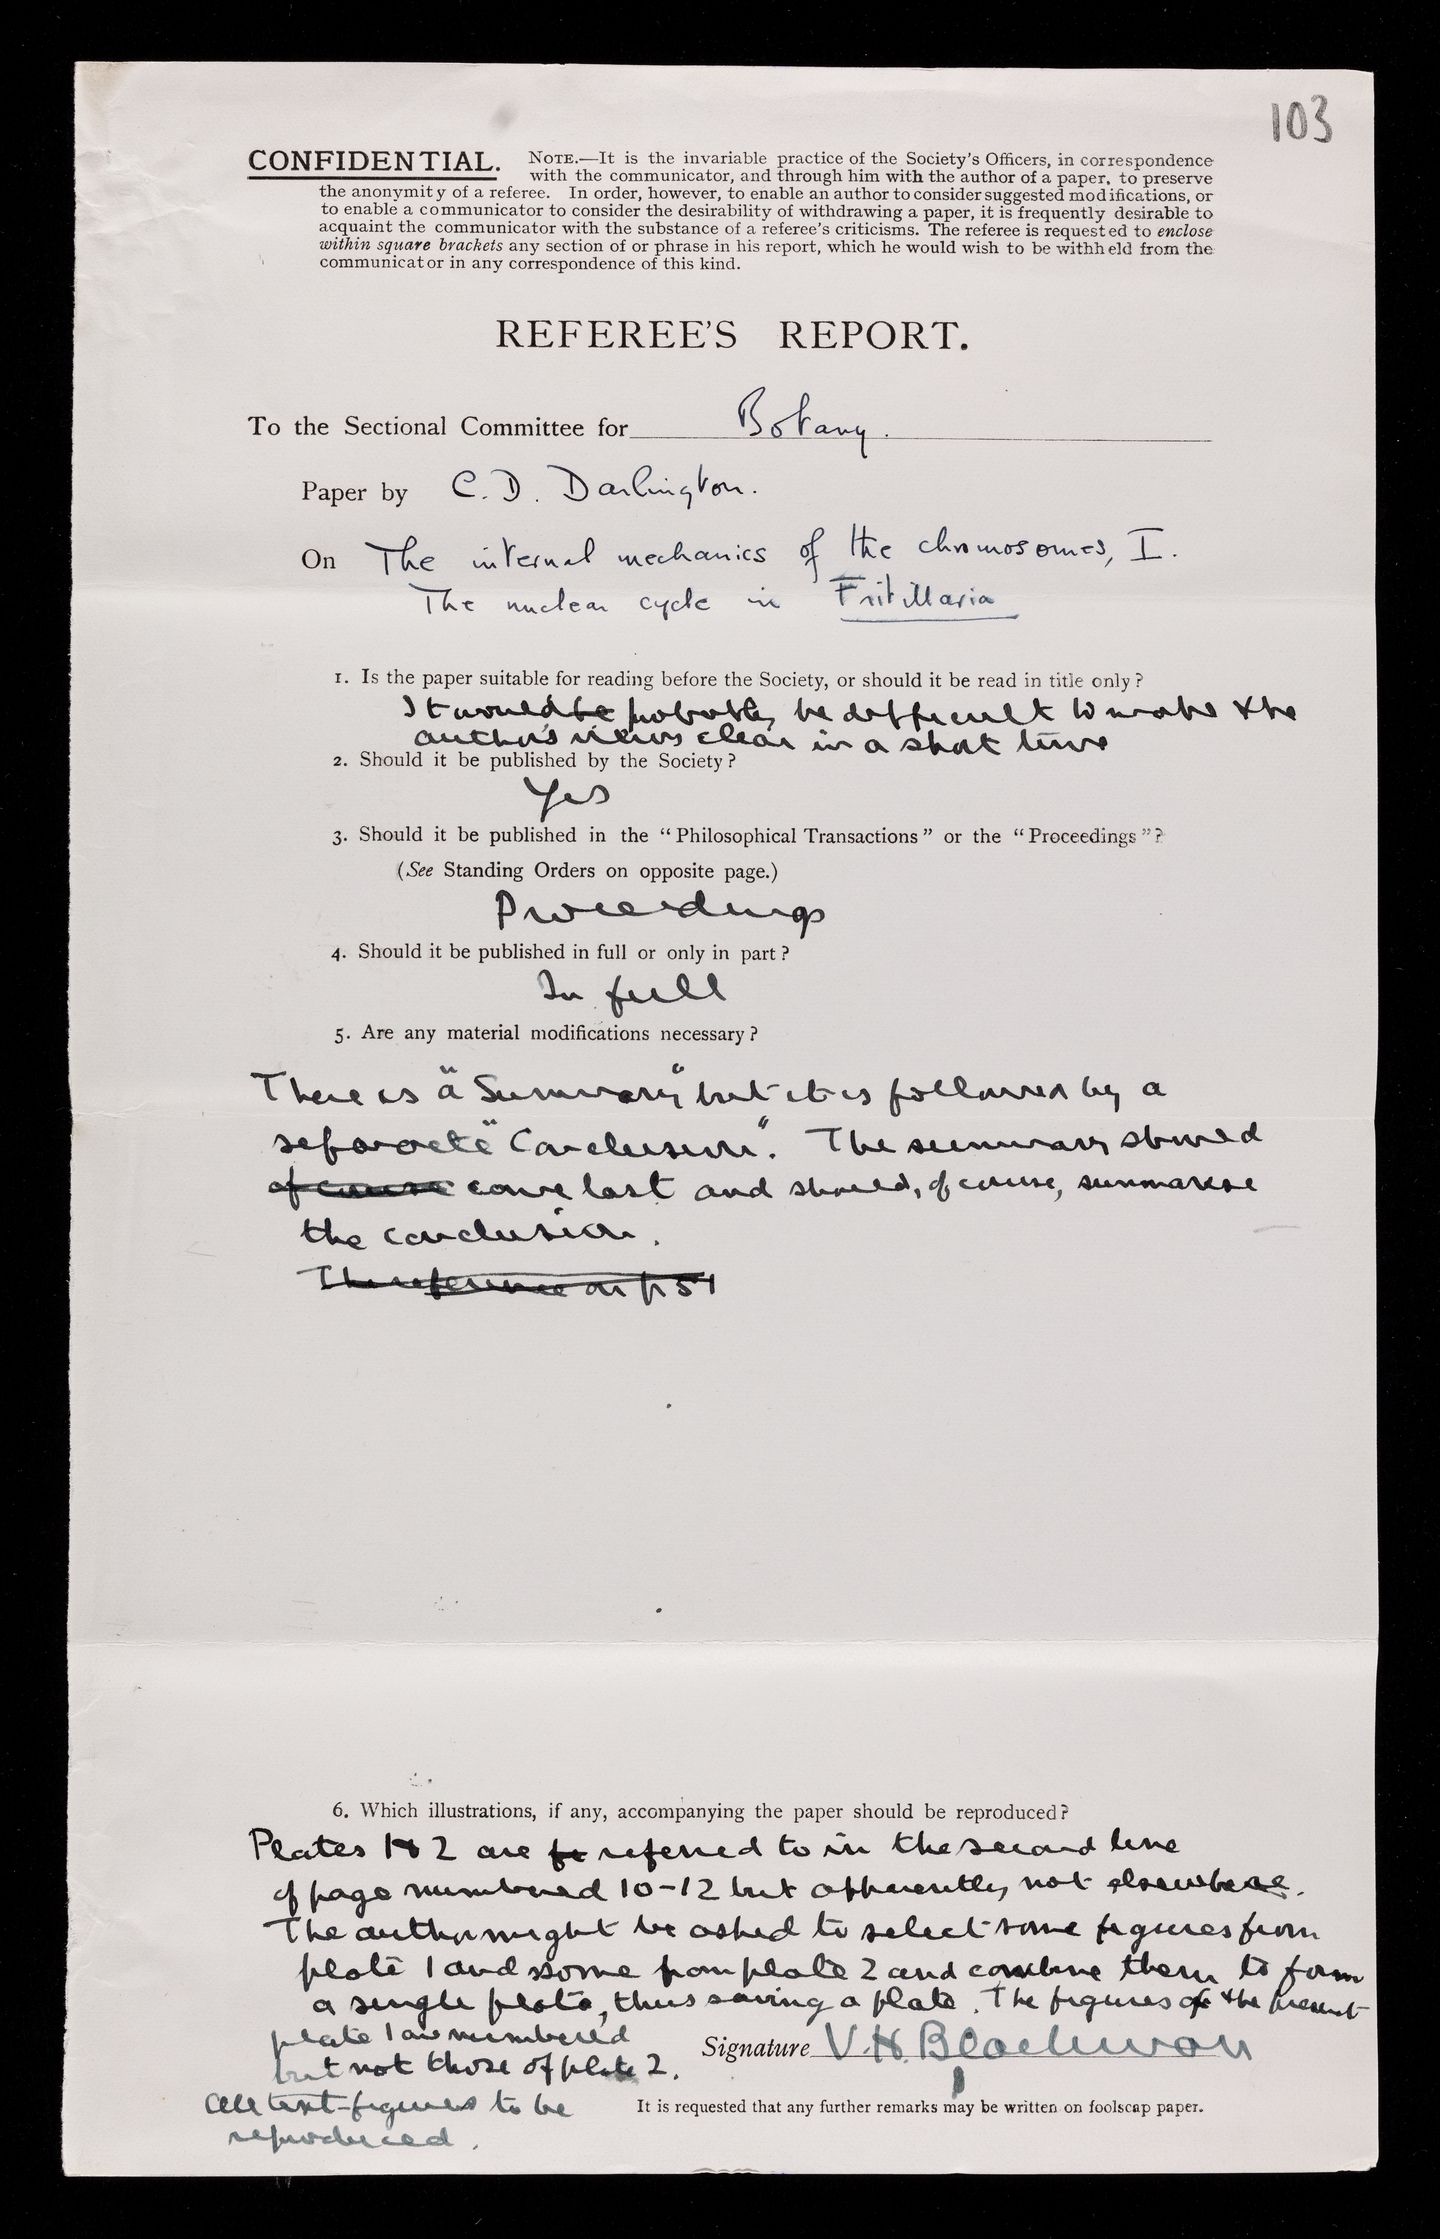 103
CONFIDENTIAL. NOTE.—It is the invariable practice of the Society's Officers, in correspondence
with the communicator, and through him with the author of a paper, to preserve
the anonymity of a referee. In order, however, to enable an author to consider suggested modifications, or
to enable a communicator to consider the desirability of withdrawing a paper, it is frequently desirable to
acquaint the communicator with the substance of a referee's criticisms. The referee is requested to enclose
within square brackets any section of or phrase in his report, which he would wish to be withheld from the
communicator in any correspondence of this kind.
REFEREE'S REPORT.
To the Sectional Committee for Botany.
Paper by C. D. Darlington.
On The internal mechanics of the chromosomes, I.
The nuclear cycle in Fritillaria
1. Is the paper suitable for reading before the Society, or should it be read in title only?
It would be probably be difficult to make the
author's views clear in a short time
2. Should it be published by the Society?
Yes
3. Should it be published in the "Philosophical Transactions" or the "Proceedings"?
(See Standing Orders on opposite page.)
Proceedings
4. Should it be published in full or only in part?
In full
5. Are any material modifications necessary?
There is a "Summary" but it is followed by a
separate "Conclusion". The summary should
of course come last and should, of course, summarise
the conclusion.
The reference on p 51
6. Which illustrations, if any, accompanying the paper should be reproduced?
Plates 1 & 2 are referred to in the second line
of page numbered 10-12 but apparently not elsewhere.
The author might be asked to select some figures from
plate 1 and some from plate 2 and combine them to form
a single plate, thus saving a plate. The figures of the present
plate 1 are numbered
but not those of plate 2.
All text-figures to be
reproduced.
Signature V. H. Blackman
It is requested that any further remarks may be written on foolscap paper.